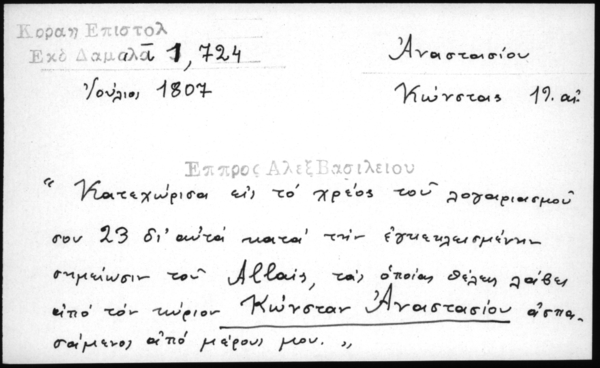 Κοραη Επιστολ
Εκδ Δαμαλᾶ 1, 724
Ἀναστασίου
Ἰούλιος 1807
Κώνστας 19. αἰ.
Επρος ΑλεξΒασιλειου
"Κατεχώρισα εἰς τό χρέος τοῦ λογαριασμοῦ
σου 23 δι' αὐτά κατά τήν ἐγκεκλεισμένην
σημείωσιν τοῦ Allais, τάς ὁποίας θέλεις λάβει
ἀπό τόν κύριον Κώνσταν Ἀναστασίου ἀσπα-
σάμενος ἀπό μέρους μου. "